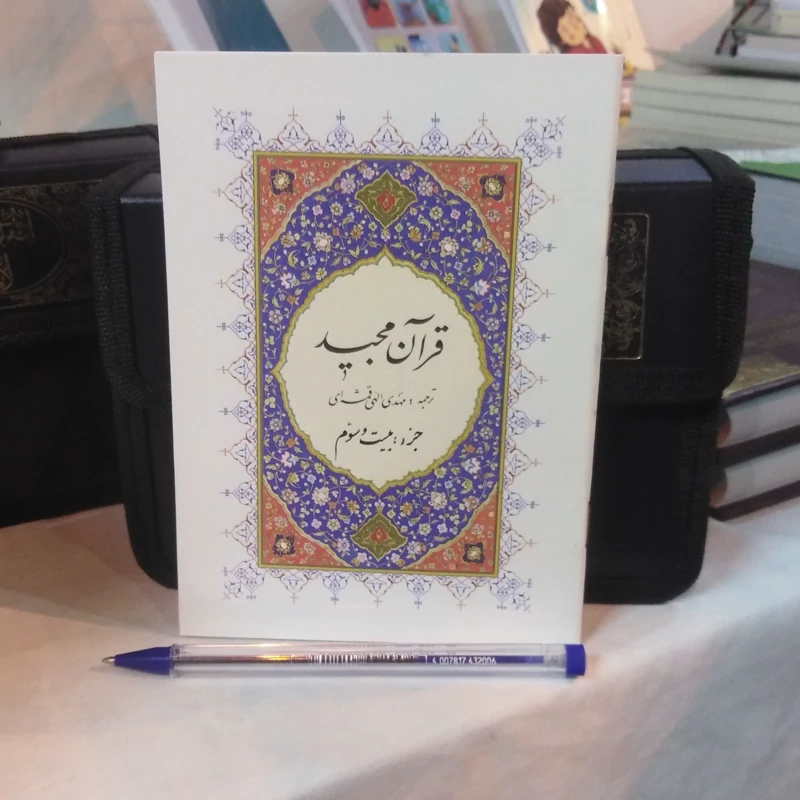 قرآن مجید
ترجمه : مهدی الهی قمشه‌ای
جزء : بیست و سوم
4 007817 432006